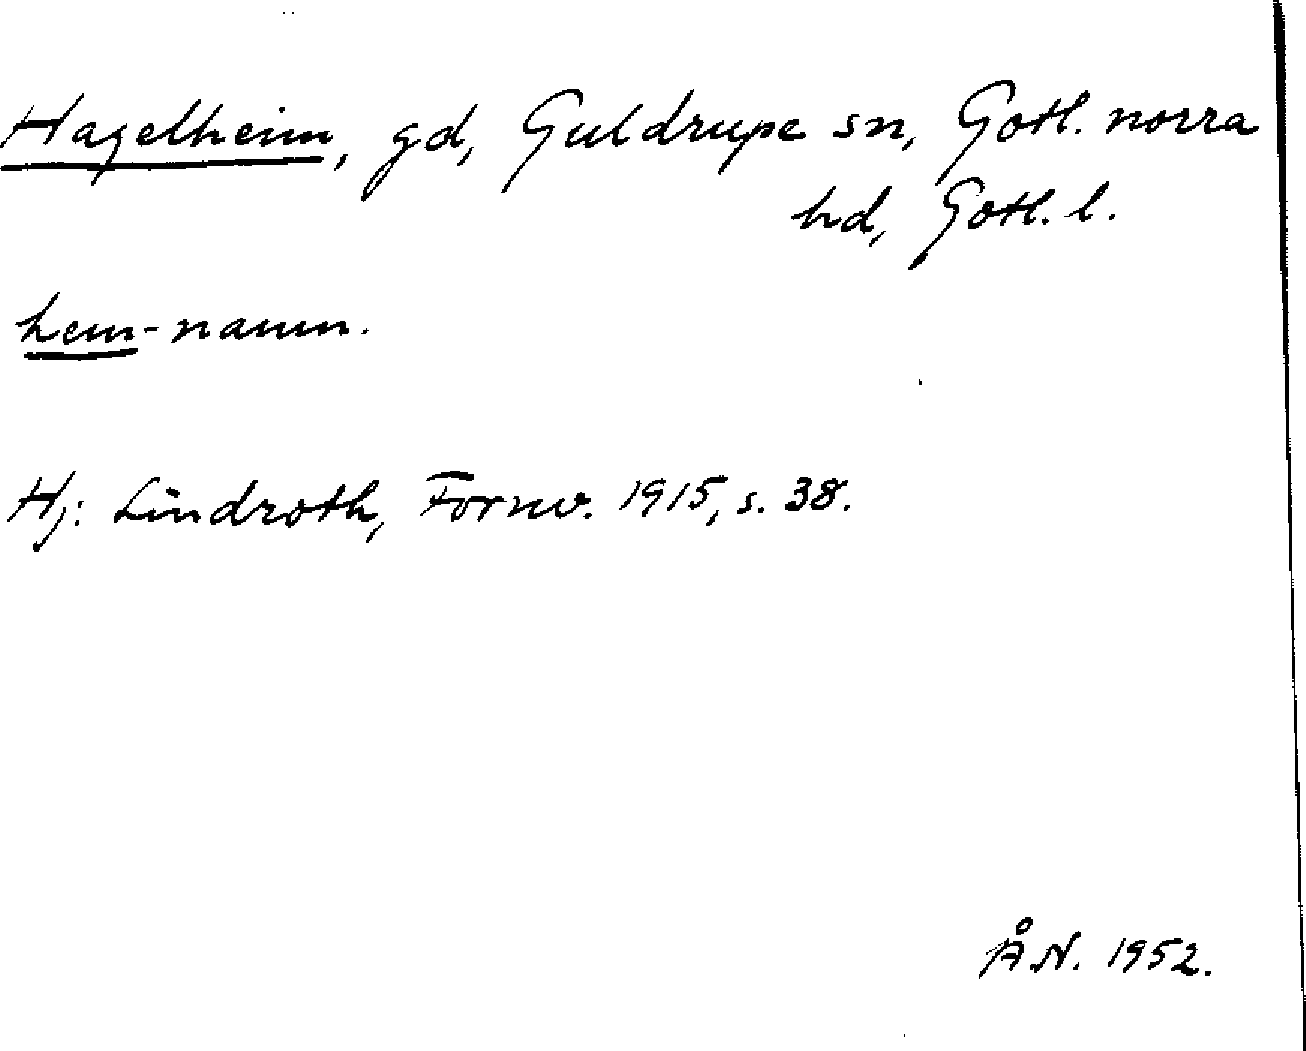 Hagelheim, gd, Guldrupe sn, Gotl. norra
hd, Gotl. l.
hem-namn.
Hj. Lindroth, Fornv. 1915, s. 38.
Å.N. 1952.